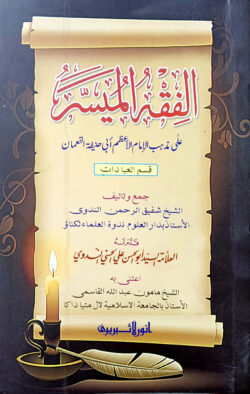 الفقه الميسر
على مذهب الإمام الأعظم أبي حنيفة النعمان
قسم العبادات
جمع وتاليف
الشيخ شفيق الرحمن الندوى
الأستاذ بدار العلوم ندوة العلماء لكناؤ
العلامة سيد ابو الحسن علي الحسني الندوي
اعتنى به
الشيخ مامون عبد الله القاسمي
الأستاذ بالجامعة الاسلامية لال متيا داكا
انور لائبريرى